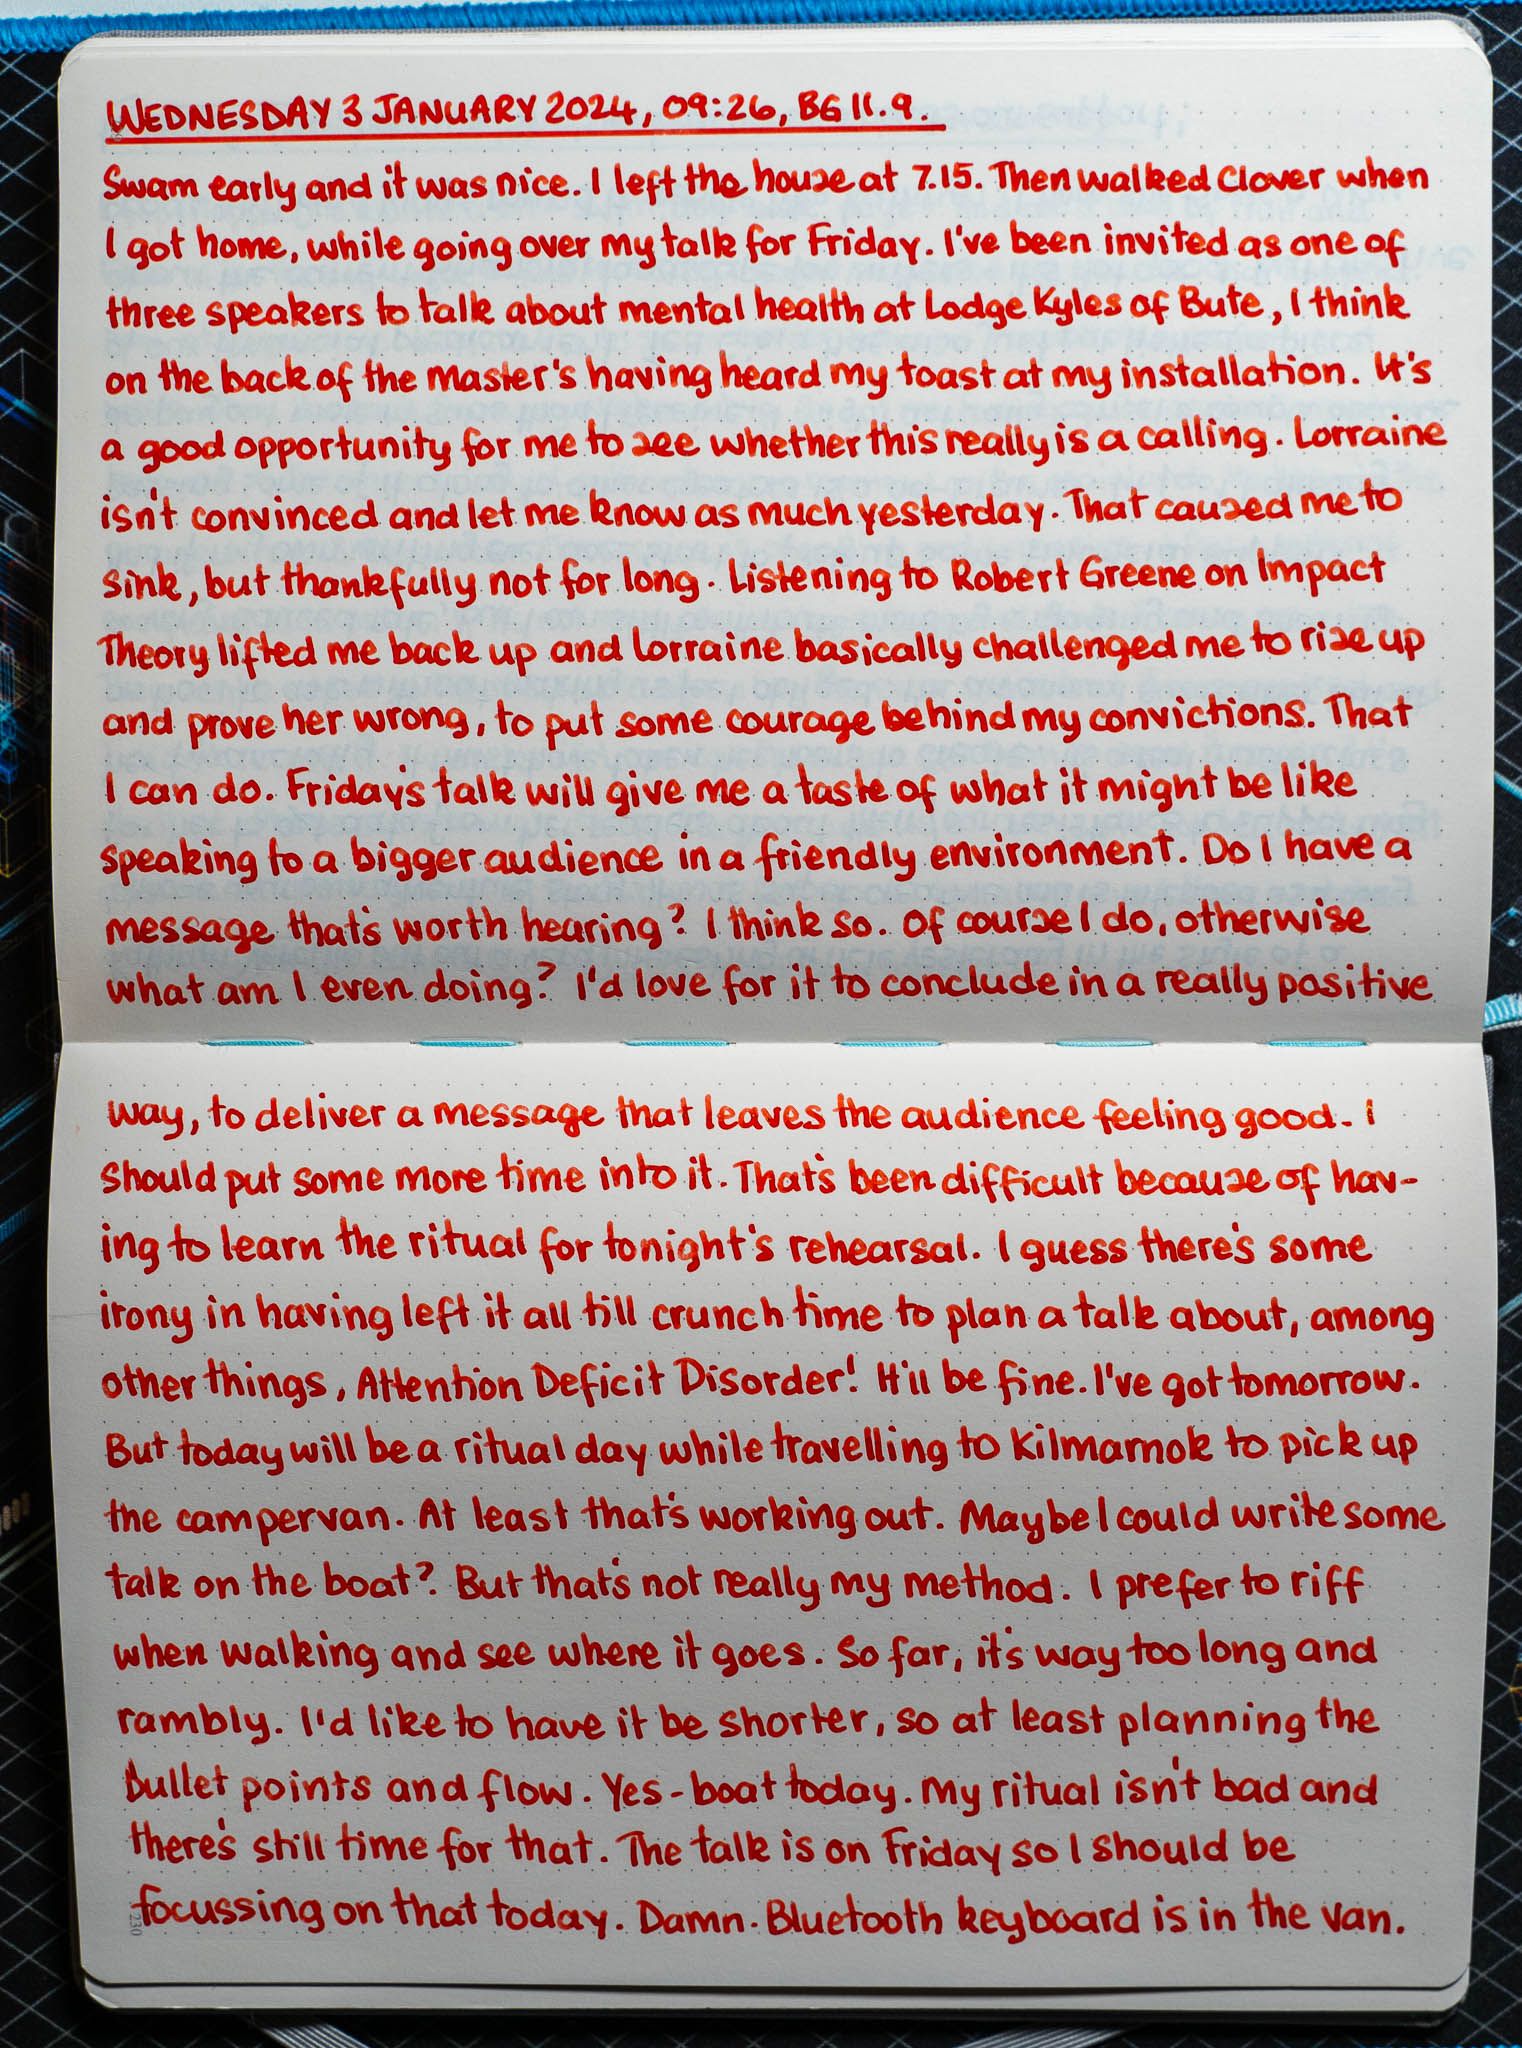 WEDNESDAY 3 JANUARY 2024, 09:26, BG 11.9.
Swam early and it was nice. I left the house at 7.15. Then walked Clover when
I got home, while going over my talk for Friday. I've been invited as one of
three speakers to talk about mental health at Lodge Kyles of Bute, I think
on the back of the Master's having heard my toast at my installation. It's
a good opportunity for me to see whether this really is a calling. Lorraine
isn't convinced and let me know as much yesterday. That caused me to
sink, but thankfully not for long. Listening to Robert Greene on Impact
Theory lifted me back up and Lorraine basically challenged me to rise up
and prove her wrong, to put some courage behind my convictions. That
I can do. Friday's talk will give me a taste of what it might be like
speaking to a bigger audience in a friendly environment. Do I have a
message that's worth hearing? I think so. Of course I do, otherwise
what am I even doing? I'd love for it to conclude in a really positive
way, to deliver a message that leaves the audience feeling good. I
should put some more time into it. That's been difficult because of hav-
ing to learn the ritual for tonight's rehearsal. I guess there's some
irony in having left it all till crunch time to plan a talk about, among
other things, Attention Deficit Disorder! It'll be fine. I've got tomorrow.
But today will be a ritual day while travelling to Kilmarnok to pick up
the campervan. At least that's working out. Maybe I could write some
talk on the boat? But that's not really my method. I prefer to riff
when walking and see where it goes. So far, it's way too long and
rambly. I'd like to have it be shorter, so at least planning the
bullet points and flow. Yes - boat today. My ritual isn't bad and
there's still time for that. The talk is on Friday so I should be
focussing on that today. Damn. Bluetooth keyboard is in the van.
230